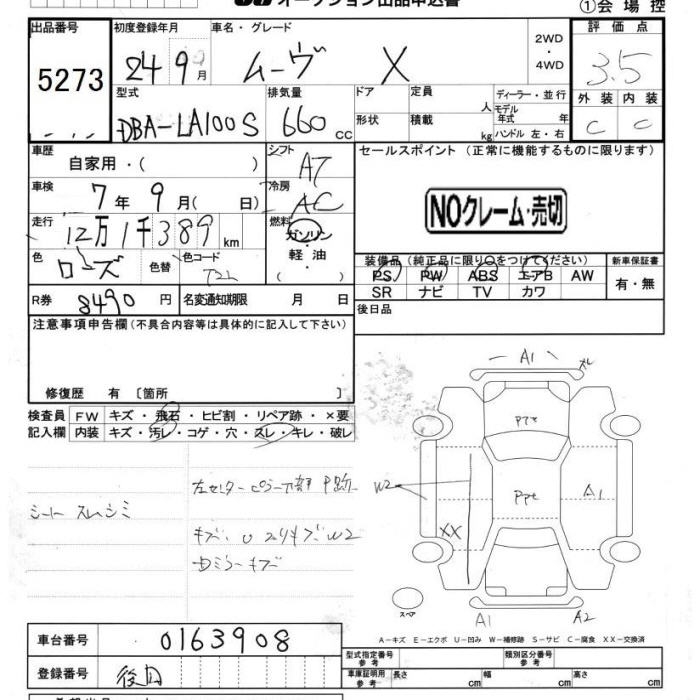 オークション出品申込書
①会場控
出品番号 初度登録年月 車名・グレード 評価点
5273 24 9月 ムーヴ X 2WD・4WD 3.5
型式 排気量 ドア 定員 ディーラー・並行 外装 内装
DBA-LA100S 660cc 人 モデル年式 年 C C
形状 積載 kg ハンドル 左・右
車歴 シフト セールスポイント (正常に機能するものに限ります)
自家用・( ) AT
車検 冷房 NOクレーム・売切
7年 9月( 日) AC
走行 燃料
12万1千389km ガソリン・軽油・( )
色 色替 色コード 装備品 (純正品に限り○をつけてください) 新車保証書
ローズ T22 PS PW ABS エアB AW 有・無
SR ナビ TV カワ
R券 8490円 名変通知期限 月 日 後日品
注意事項申告欄(不具合内容等は具体的に記入して下さい)
修復歴 有 〔箇所 〕
検査員 FW キズ・飛石・ヒビ割・リペア跡・×要
記入欄 内装 キズ・汚レ・コゲ・穴・スレ・キレ・破レ
A1
左センターピラー下部 P跡
シート スレ シミ
W2
キズ・U スリキズ W2
ミラーキズ
Pてt
Ppt
A1
XX
スペア
A1 A2
A-キズ E-エクボ U-凹み W-補修跡 S-サビ C-腐食 XX-交換済
車台番号 0163908
型式指定番号 参考 類別区分番号 参考
登録番号 後日
車庫証明用 参考 長さ cm 幅 cm 高さ cm